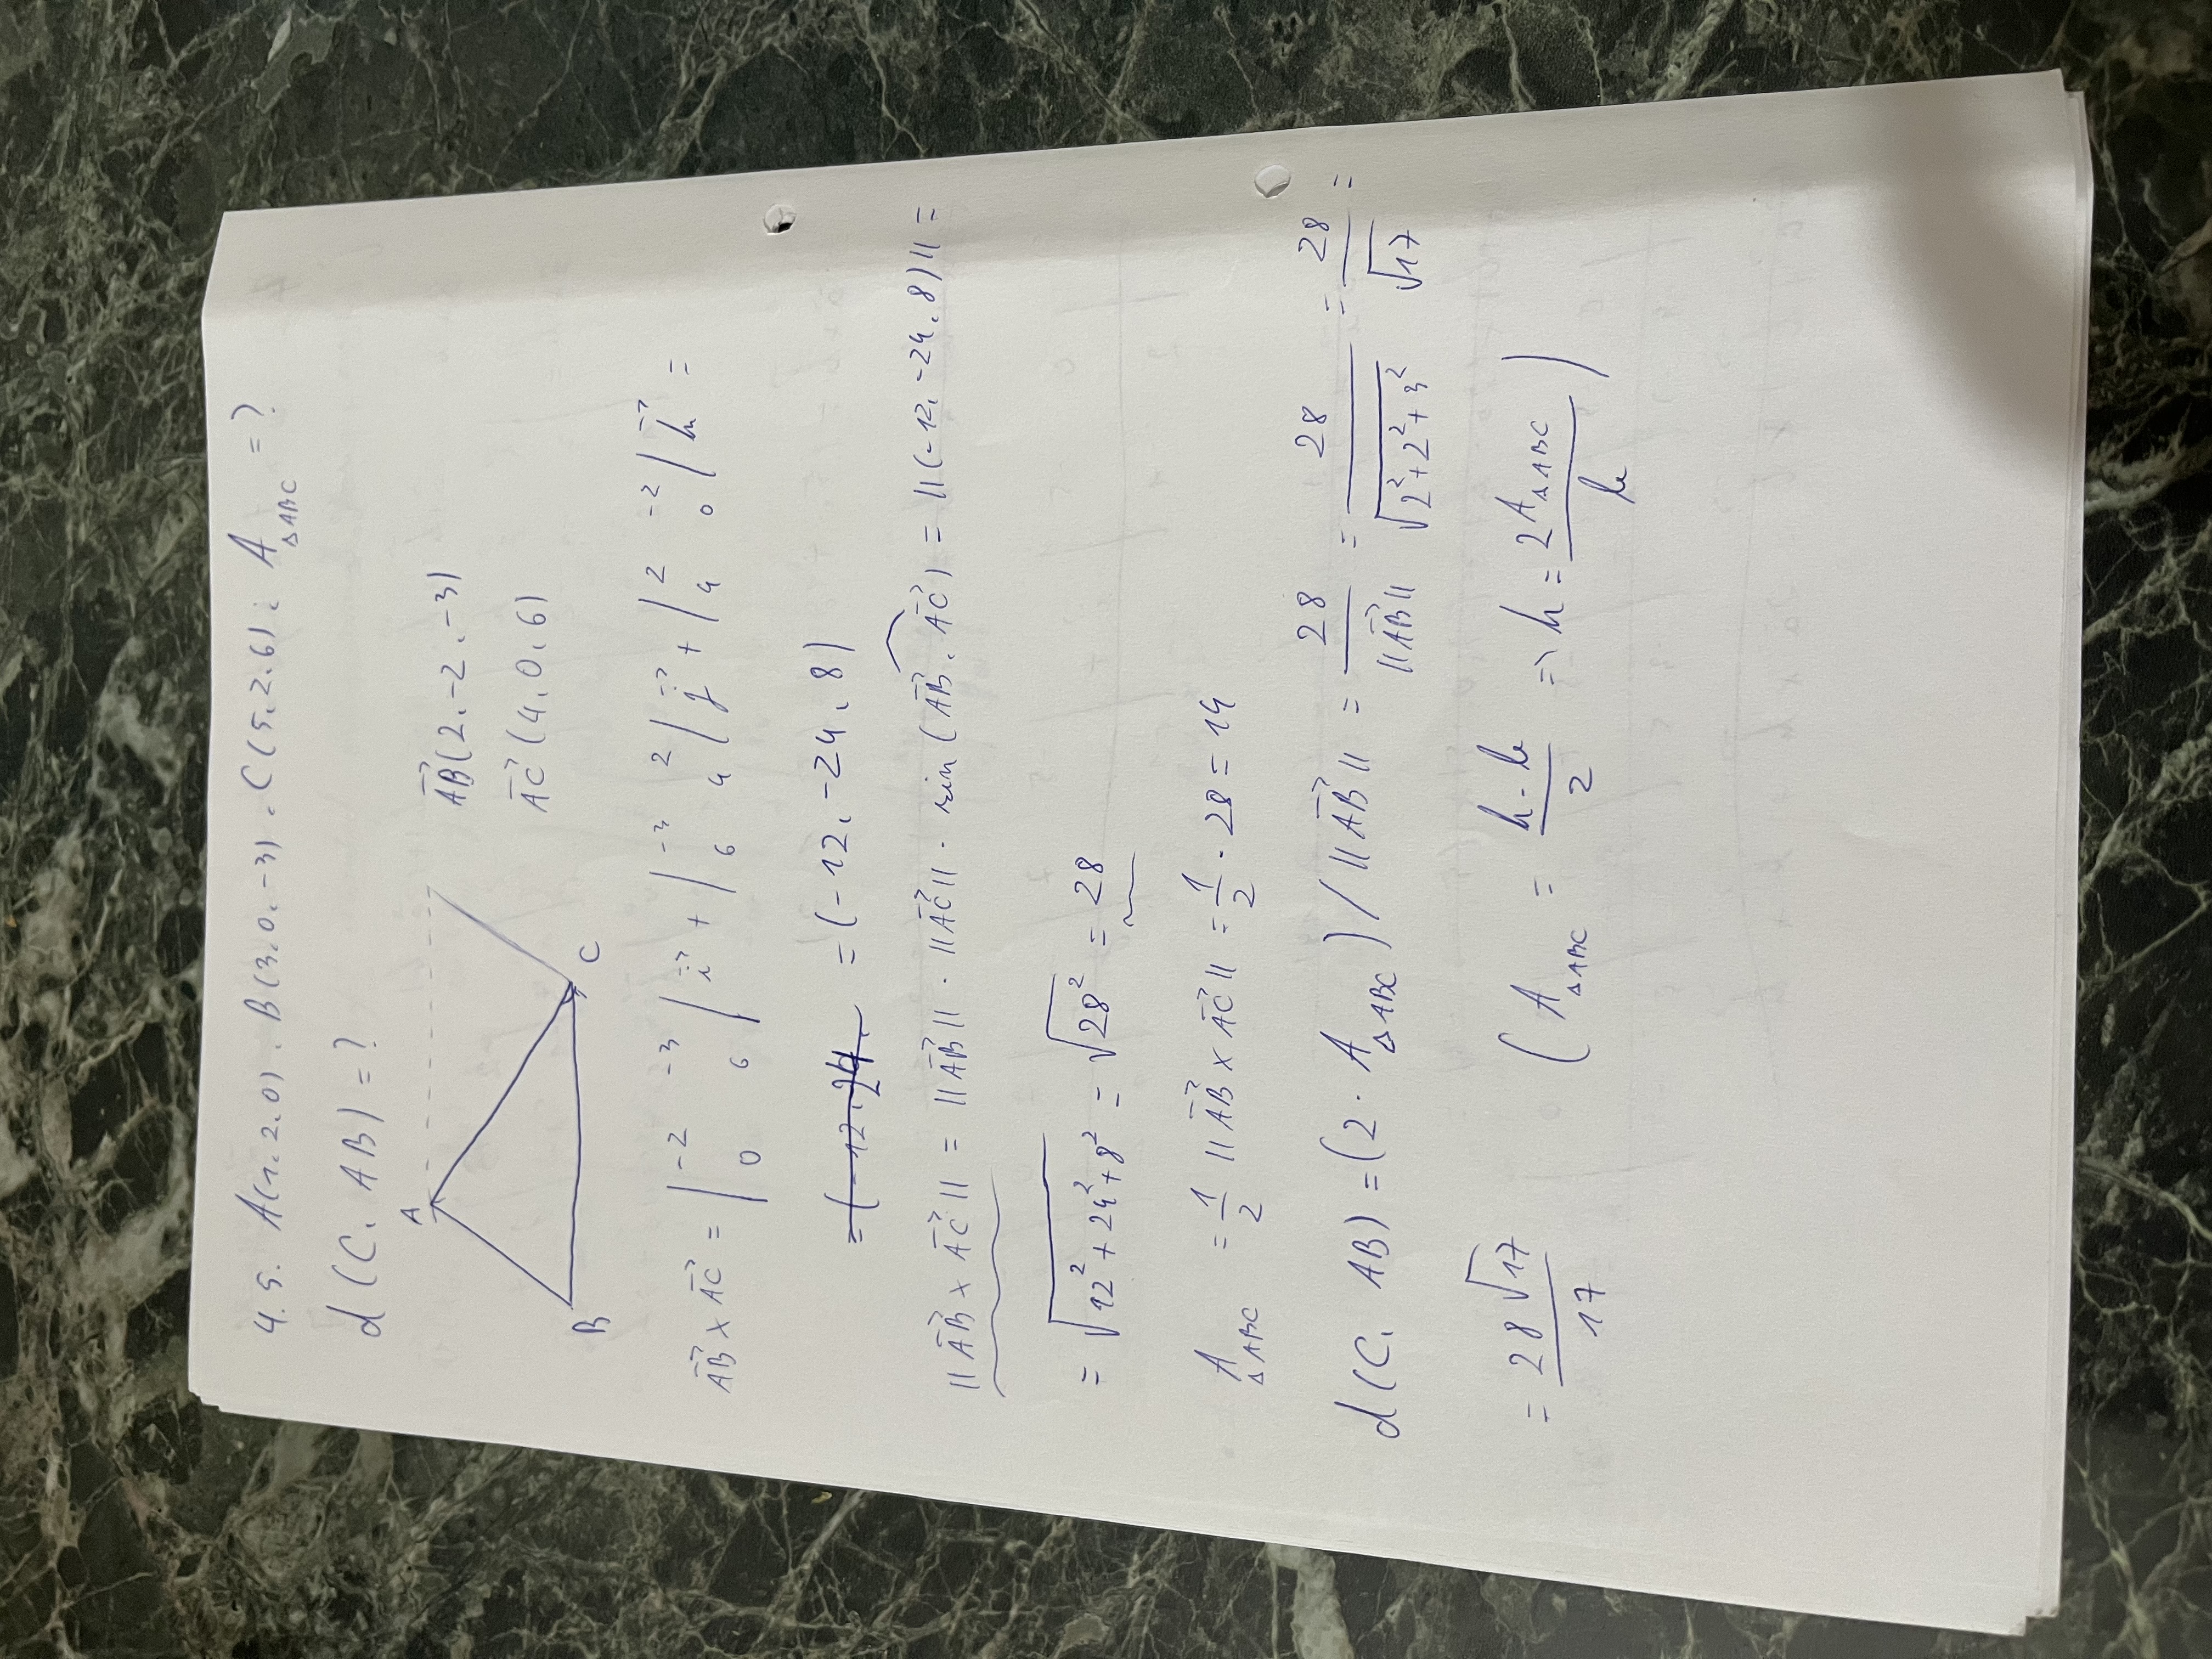 4.5. A(1,2,0), B(3,0,-3), C(5,2,6); A_{ΔABC} = ?
d(C, AB) = ?
A
B
C
\vec{AB}(2,-2,-3)
\vec{AC}(4,0,6)
\vec{AB} × \vec{AC} = |-2 -3; 0 6| \vec{i} + |-3 2; 6 4| \vec{j} + |2 -2; 4 0| \vec{k} =
= (-12, -24, 8)
||\vec{AB} × \vec{AC}|| = ||\vec{AB}|| · ||\vec{AC}|| · sin(\vec{AB}, \vec{AC}) = ||(-12, -24, 8)|| =
= √(12² + 24² + 8²) = √(28²) = 28
A_{ΔABC} = 1/2 ||\vec{AB} × \vec{AC}|| = 1/2 · 28 = 14
d(C, AB) = (2 · A_{ΔABC}) / ||\vec{AB}|| = 28/||\vec{AB}|| = 28/√(2² + 2² + 3²) = 28/√17 =
= 28√17/17 (A_{ΔABC} = h·b/2 => h = 2A_{ΔABC}/b)